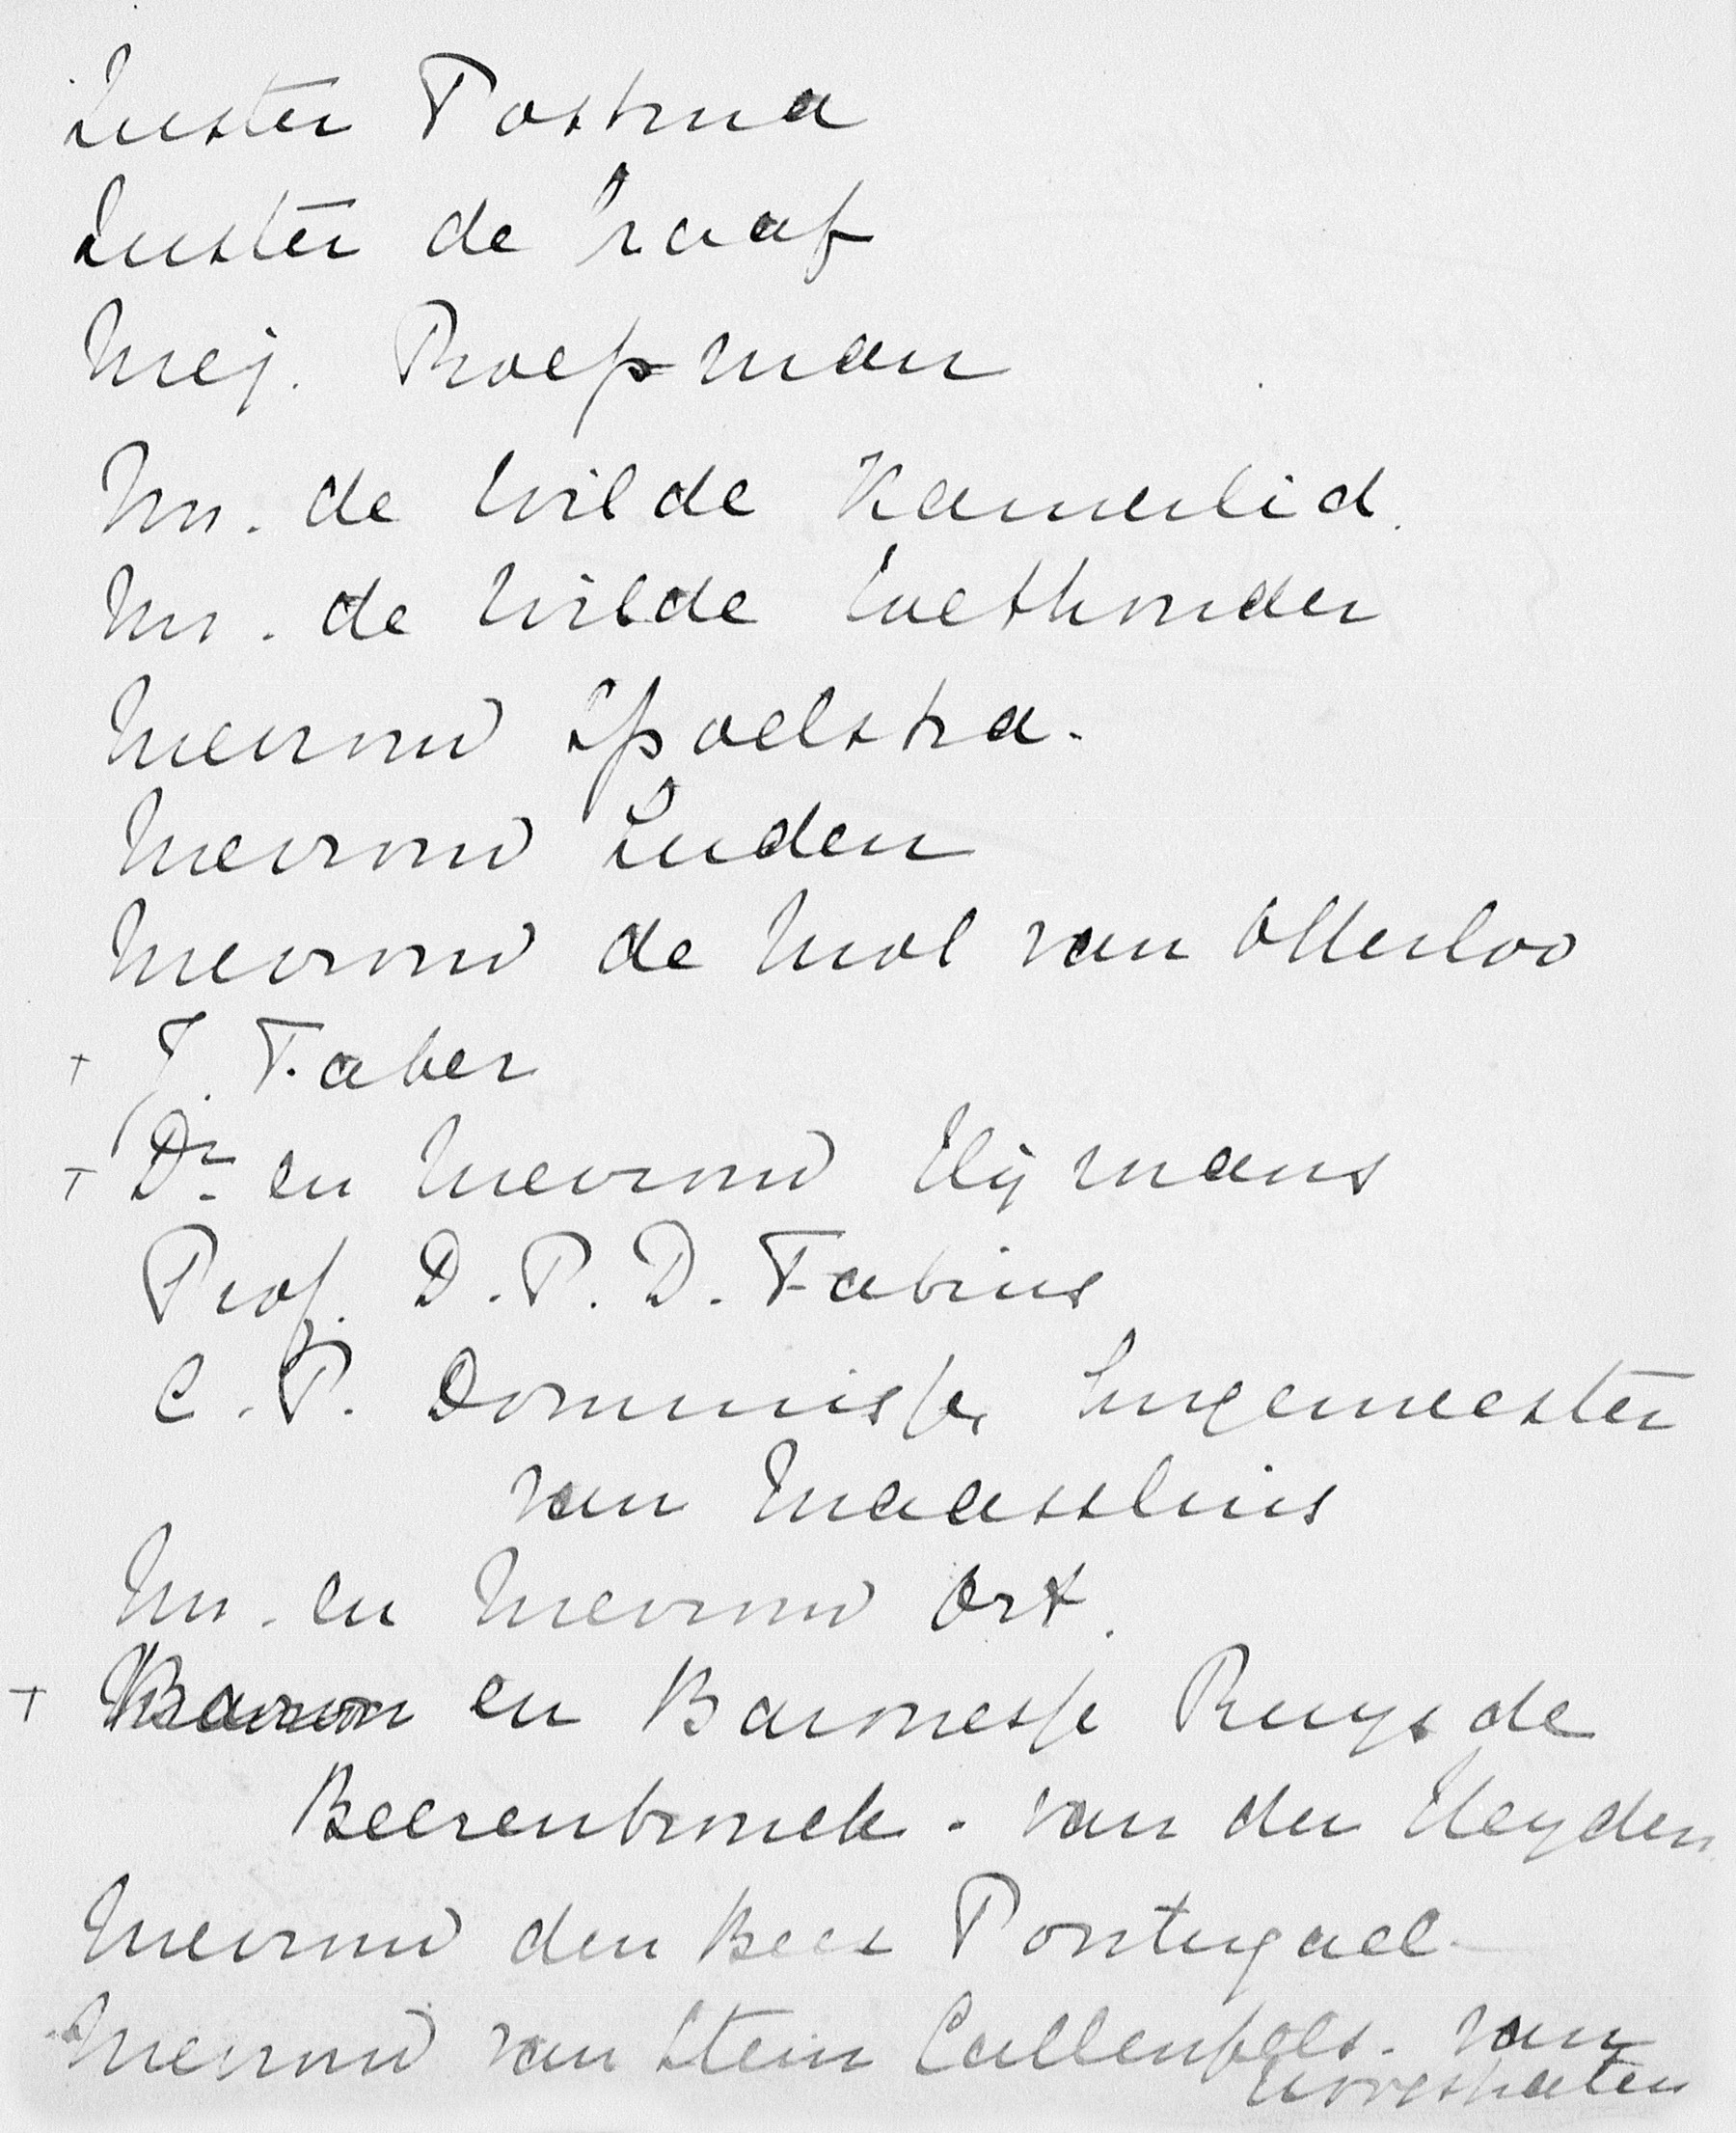 Zuster Postma
Zuster de Graaf
Mej. Proepman
Mr. de Wilde Kamerlid.
Mr. de Wilde Wethouder
Mevrouw Spoelstra.
Mevrouw Luden
Mevrouw de Mol van Otterloo
+ J. Faber
+ Dr en Mevrouw Heymans
Prof. D. P. D. Fabius
C. P. Dommisse, burgemeester
van Maassluis
Mr. en Mevrouw Ort.
+ Baron en Baronesse Ruys de
Beerenbrouck - van der Heyden
Mevrouw den Beer Portugael
Mevrouw van Stein Callenfels - van